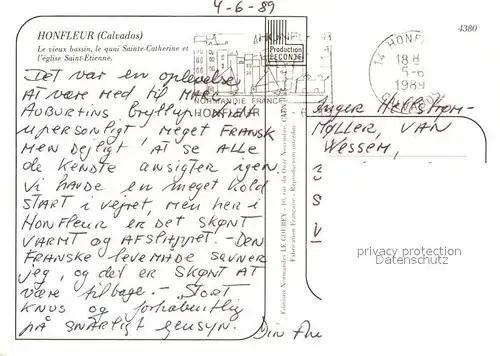 4-6-89
HONFLEUR (Calvados)
Le vieux bassin, le quai Sainte-Catherine et
l'église Saint-Etienne.
4380
Production
LECONTE
14 HONFL
18 H
5-6
1989
CALVADOS
NORMANDIE FRANCE
HONFLEUR
Det var en oplevelse
at være med til
Auburtins bryllup
upersonligt, meget fransk
men dejligt, at se alle
de kendte ansigter igen.
Vi havde en meget kold
start i vejret, men her i
Honfleur er det skønt
varmt og afslappet. - Den
franske levemåde savner
jeg, og det er skønt at
være tilbage. - Stort
knus og forhåbentlig
på snarligt gensyn. Din
Inger
Møller, van
Wessem,
Editions Normandes LE GOUBEY - 10, rue du Onze Novembre, CAEN
Fabrication Française - Reproduction interdite
privacy protection
Datenschutz